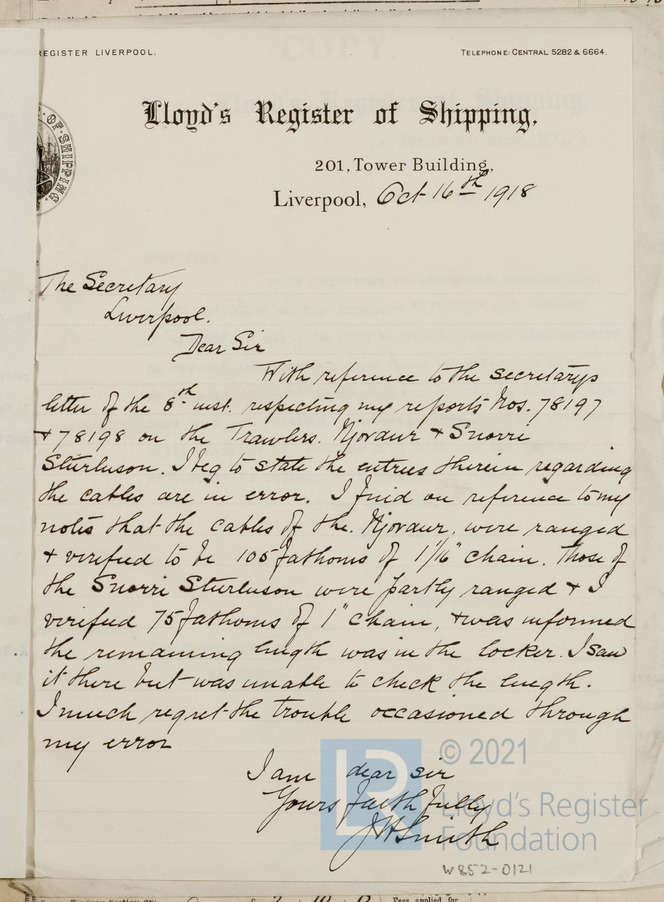 REGISTER LIVERPOOL.
TELEPHONE: CENTRAL 5282 & 6664.
COPY.
OF SHIPPING
Lloyd's Register of Shipping,
201, Tower Building,
Liverpool, Oct 16th 1918
The Secretary
Liverpool.
Dear Sir
With reference to the secretarys
letter of the 8th inst. respecting my reports Nos. 78197
& 78198 on the Trawlers. Njordur & Snorri
Sturluson. I beg to state the entries therein regarding
the cables are in error. I find on reference to my
notes that the cables of the. Njordur, were ranged
& verified to be 105 fathoms of 1 1/16" chain. Those of
the Snorri Sturluson were partly ranged & I
verified 75 fathoms of 1" chain, & was informed
the remaining length was in the locker. I saw
it there but was unable to check the length.
I much regret the trouble occasioned through
my error
I am dear sir
Yours faithfully
JHSmith
© 2021
Lloyd's Register
Foundation
W852-0121